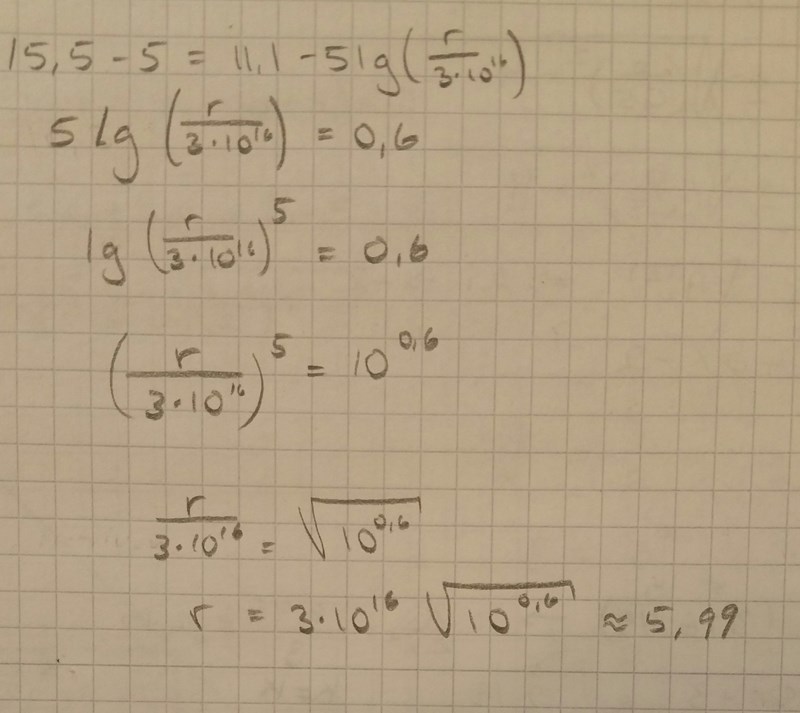 15,5 - 5 = 11,1 - 5 lg(r/(3·10^16))
5 lg (r/(3·10^16)) = 0,6
lg (r/(3·10^16))^5 = 0,6
(r/(3·10^16))^5 = 10^0,6
r/(3·10^16) = √(10^0,6)
r = 3·10^16 √(10^0,6) ≈ 5,99